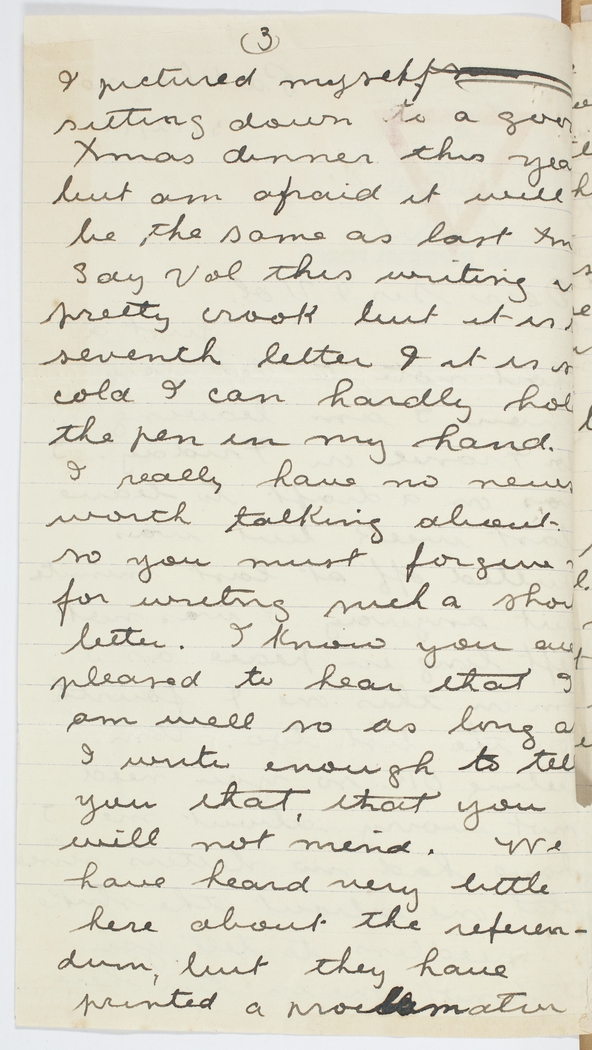 (3)
I pictured myself
sitting down to a goo
Xmas dinner this yea
but am afraid it will
be the same as last Xm
Say Vol this writing
pretty crook but it is
seventh letter & it is s
cold I can hardly hol
the pen in my hand.
I really have no news
worth talking about
so you must forgive
for writng such a shor
letter. I know you are
pleased to hear that I
am well so as long a
I write enough to tell
you that, that you
will not mind. We
have heard very little
here about the referen-
dum, but they have
printed a proclamation